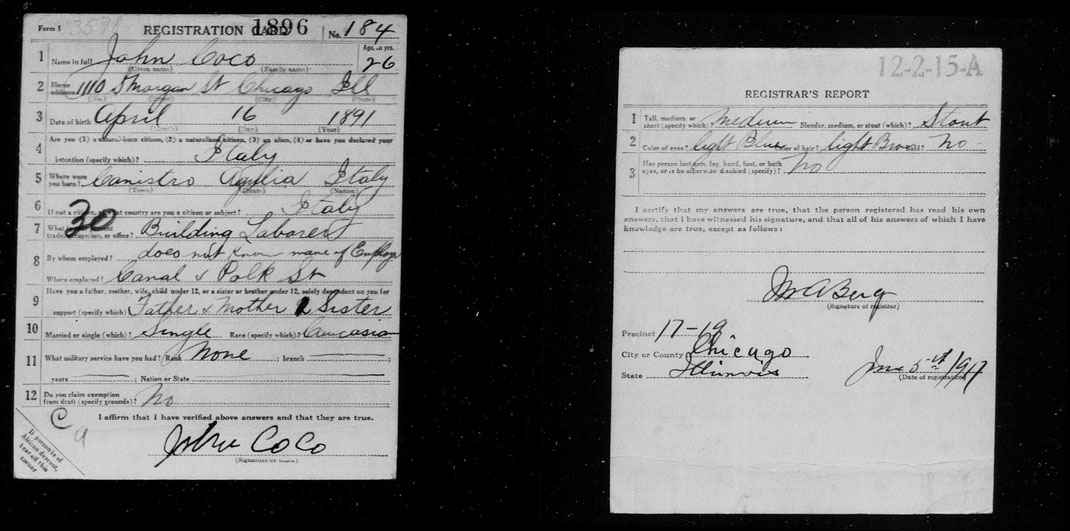 Form 1 357 REGISTRATION CARD 1896 No. 184
1 Name in full John Coco Age, in yrs. 26
(Given name) (Family name)
2 Home address 1110 S Morgan St Chicago Ill
3 Date of birth April 16 1891
(Month) (Day) (Year)
4 Are you (1) a natural-born citizen, (2) a naturalized citizen, (3) an alien, (4) or have you declared your
intention (specify which)? Italy
5 Where were you born? Canistro Aquilia Italy
(Town) (State) (Nation)
6 If not a citizen, of what country are you a citizen or subject? Italy
30
7 What is your present trade, occupation, or office? Building Laborer
8 By whom employed? does not know name of Employ
Where employed? Canal & Polk St
9 Have you a father, mother, wife, child under 12, or a sister or brother under 12, solely dependent on you for
support (specify which)? Father & Mother & Sister
10 Married or single (which)? Single Race (specify which)? Caucasian
11 What military service have you had? Rank None ; branch ;
years ; Nation or State
12 Do you claim exemption
from draft (specify grounds)? No
I affirm that I have verified above answers and that they are true.
C 9
John CoCo
(Signature or mark)
If person is of
African descent,
tear off this
corner
12-2-15-A
REGISTRAR'S REPORT
1 Tall, medium, or
short (specify which)? Medium Slender, medium, or stout (which)? Stout
2 Color of eyes? light Blue Color of hair? light Brown Bald? No
3 Has person lost arm, leg, hand, foot, or both
eyes, or is he otherwise disabled (specify)? No
I certify that my answers are true, that the person registered has read his own
answers, that I have witnessed his signature, and that all of his answers of which I have
knowledge are true, except as follows:
Berg
(Signature of registrar)
Precinct 17-19
City or County Chicago
State Illinois
June 5th 1917
(Date of registration)